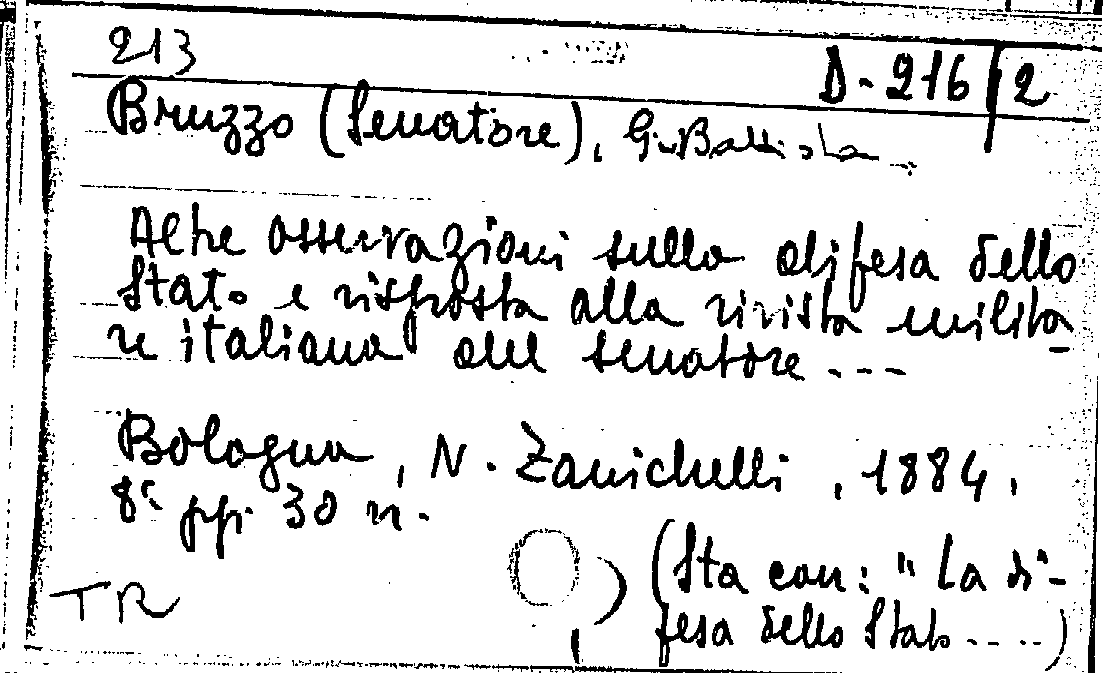 213
D-216/2
Bruzzo (Senatore), G. Battista
Altre osservazioni sulla difesa dello
Stato e risposta alla rivista milita-
re italiana del senatore ---
Bologna, N. Zanichelli, 1884.
8° pp. 30 n.
(Sta con: "La di-
fesa dello Stato ....)
TR